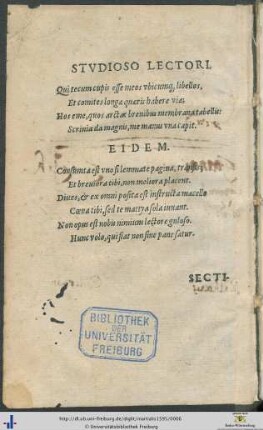 STVDIOSO LECTORI.
Qui tecum cupis esse meos vbicunq; libellos,
Et comites longa quæris habere viæ:
Hos eme, quos arctat breuibus membrana tabellis:
Scrinia da magnis, me manus vna capit.
EIDEM.
Consumta est vno si lemmate pagina, transis,
Et breuiora tibi, non meliora placent.
Diues, & ex omni posita est instructa macello
Cœna tibi, sed te mattya sola iuuant.
Non opus est nobis nimium lectore guloso.
Hunc volo, qui fiat non sine pane satur.
SECTI-
BIBLIOTHEK
DER
UNIVERSITÄT
FREIBURG
© Universitätsbibliothek Freiburg
Baden-Württemberg